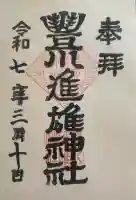 奉拝
豐川進雄神社
令和七年三月十日